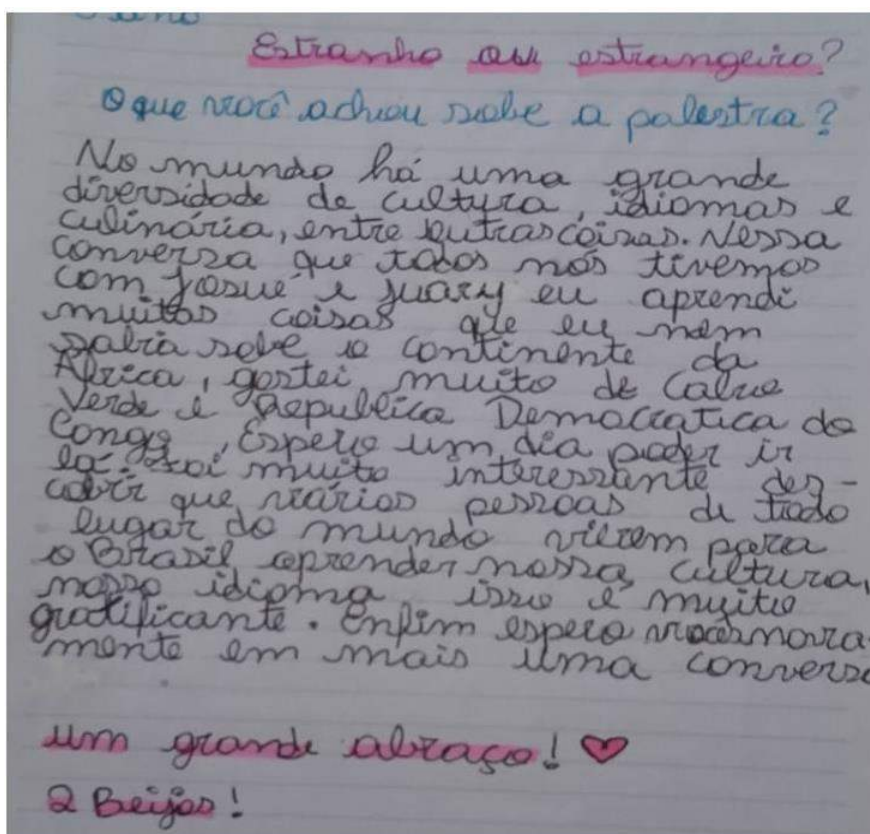 Estranho ou estrangeiro?
O que você achou sobe a palestra?
No mundo há uma grande
diversidade de cultura, idiomas e
culinária, entre outras coisas. Nessa
conversa que todos nós tivemos
com Josué e Juary eu aprendi
muitas coisas que eu nem
sabia sobe o continente da
África, gostei muito de Cabo
Verde e Republica Democratica do
Congo, Espero um dia poder ir
lá. Foi muito interessante des-
cobrir que vários pessoas de todo
lugar do mundo vieram para
o Brasil aprender nossa cultura,
nosso idioma isso é muito
gratificante. Enfim espero vocês nova-
mente em mais uma conversa
um grande abraço! ♥
2 Beijos!